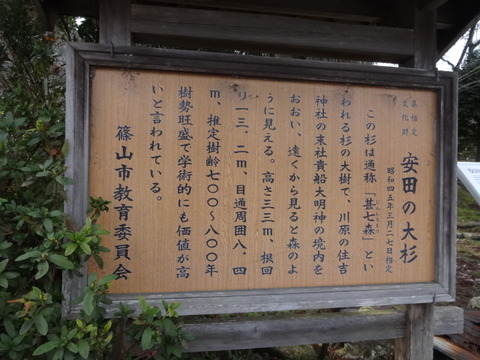 県指定
文化財
安田の大杉
昭和四五年三月二七日指定
この杉は通称「甚七森」とい
われる杉の大樹で、川原の住吉
神社の末社貴船大明神の境内を
おおい、遠くから見ると森のよ
うに見える。高さ三三m、根回
り一三.二m、目通周囲八.四
m、推定樹齢七〇〇~八〇〇年
樹勢旺盛で学術的にも価値が高
いと言われている。
篠山市教育委員会